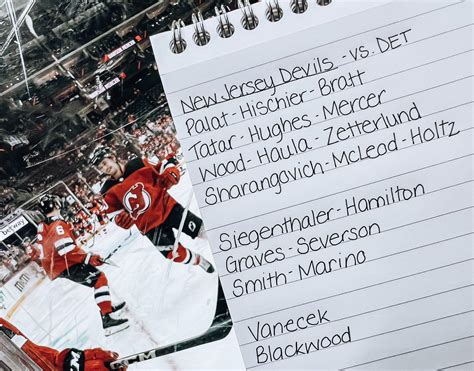 New Jersey Devils - vs. DET
Palat - Hischier - Bratt
Tatar - Hughes - Mercer
Wood - Haula - Zetterlund
Sharangavich - McLeod - Holtz
Siegenthaler - Hamilton
Graves - Severson
Smith - Marino
Vanecek
Blackwood
betway
6
CCM